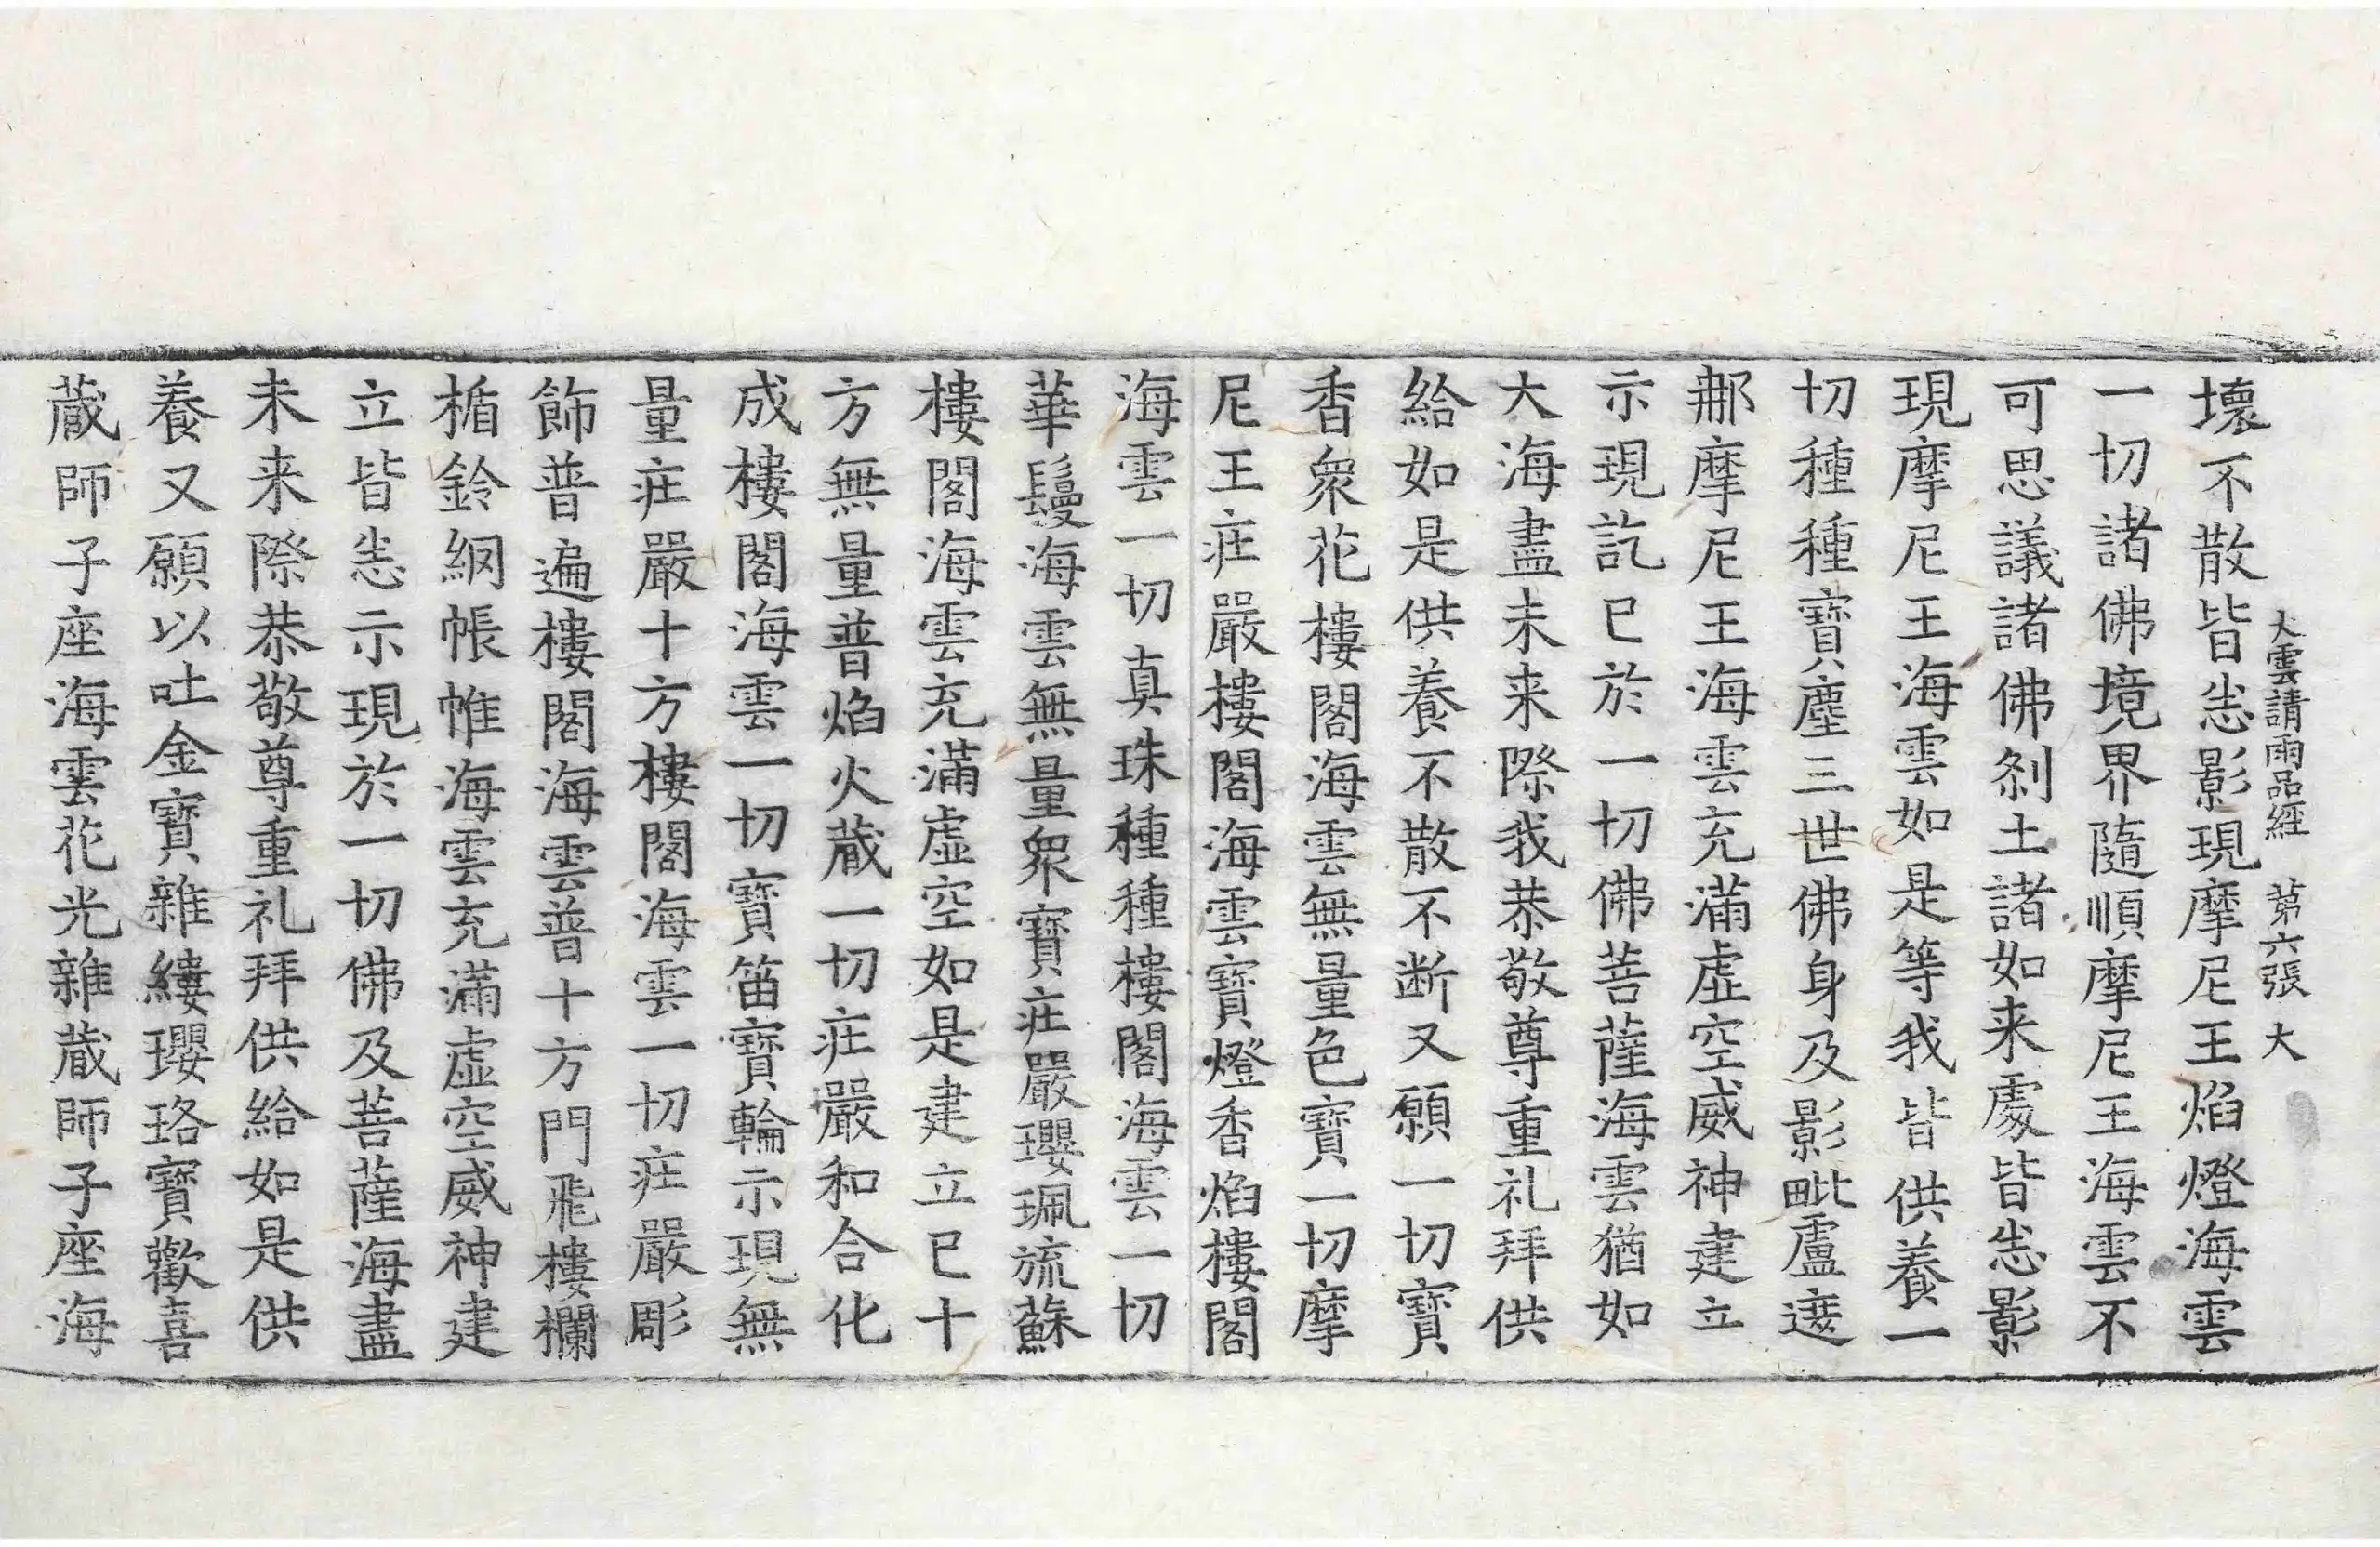 大雲請雨品經　第六張　大
壞不散皆悉影現摩尼王焰燈海雲
一切諸佛境界隨順摩尼王海雲不
可思議諸佛剎土諸如来處皆悉影
現摩尼王海雲如是等我皆供養一
切種種寶塵三世佛身及影毗盧遮
那摩尼王海雲充滿虛空威神建立
示現訖已於一切佛菩薩海雲猶如
大海盡未来際我恭敬尊重礼拜供
給如是供養不散不断又願一切寶
香衆花樓閣海雲無量色寶一切摩
尼王莊嚴樓閣海雲寶燈香焰樓閣
海雲一切真珠種種樓閣海雲一切
華鬘海雲無量衆寶莊嚴瓔珮流蘇
樓閣海雲充滿虛空如是建立已十
方無量普焰火蔵一切莊嚴和合化
成樓閣海雲一切寶笛寶輪示現無
量莊嚴十方樓閣海雲一切莊嚴彫
飾普遍樓閣海雲普十方門飛樓欄
楯鈴網帳帷海雲充滿虛空威神建
立皆悉示現於一切佛及菩薩海盡
未来際恭敬尊重礼拜供給如是供
養又願以吐金寶雜縷瓔珞寶歡喜
蔵師子座海雲花光雜蔵師子座海